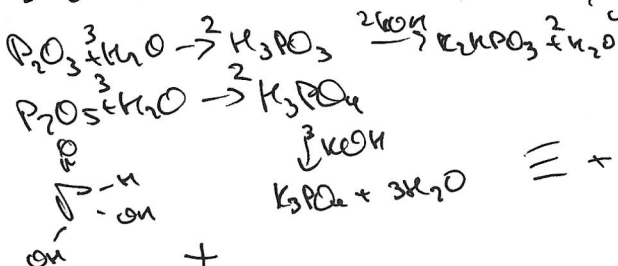 P₂O₃ + 3H₂O → 2H₃PO₃ 2KOH → K₂HPO₃ + 2H₂O
P₂O₅ + 3H₂O → 2H₃PO₄
O 3KOH
P H
OH K₃PO₄ + 3H₂O ≡ +
OH +